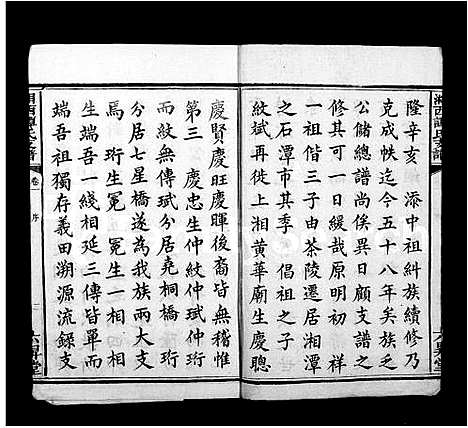 隆辛亥 添中祖糾族續修乃
克成帙迄今五十八年矣族乏
公儲總譜尚俟異日顧支譜之
修其可一日緩哉原明初 祥
一祖偕三子由茶陵遷居湘潭
之石潭市其季 倡祖之子
紋斌再徙上湘黄華廟生慶聰
慶賢慶旺慶暉後裔皆無稽惟
第三 慶忠生仲紋仲斌仲珩
而紋無傳斌分居堯桐橋珩
分居七星橋遂為我族兩大支
焉 珩生冕 冕生一相四相
生端吾一綫相延三傳皆單而
端吾祖獨存義田溯源流録支
卷 序